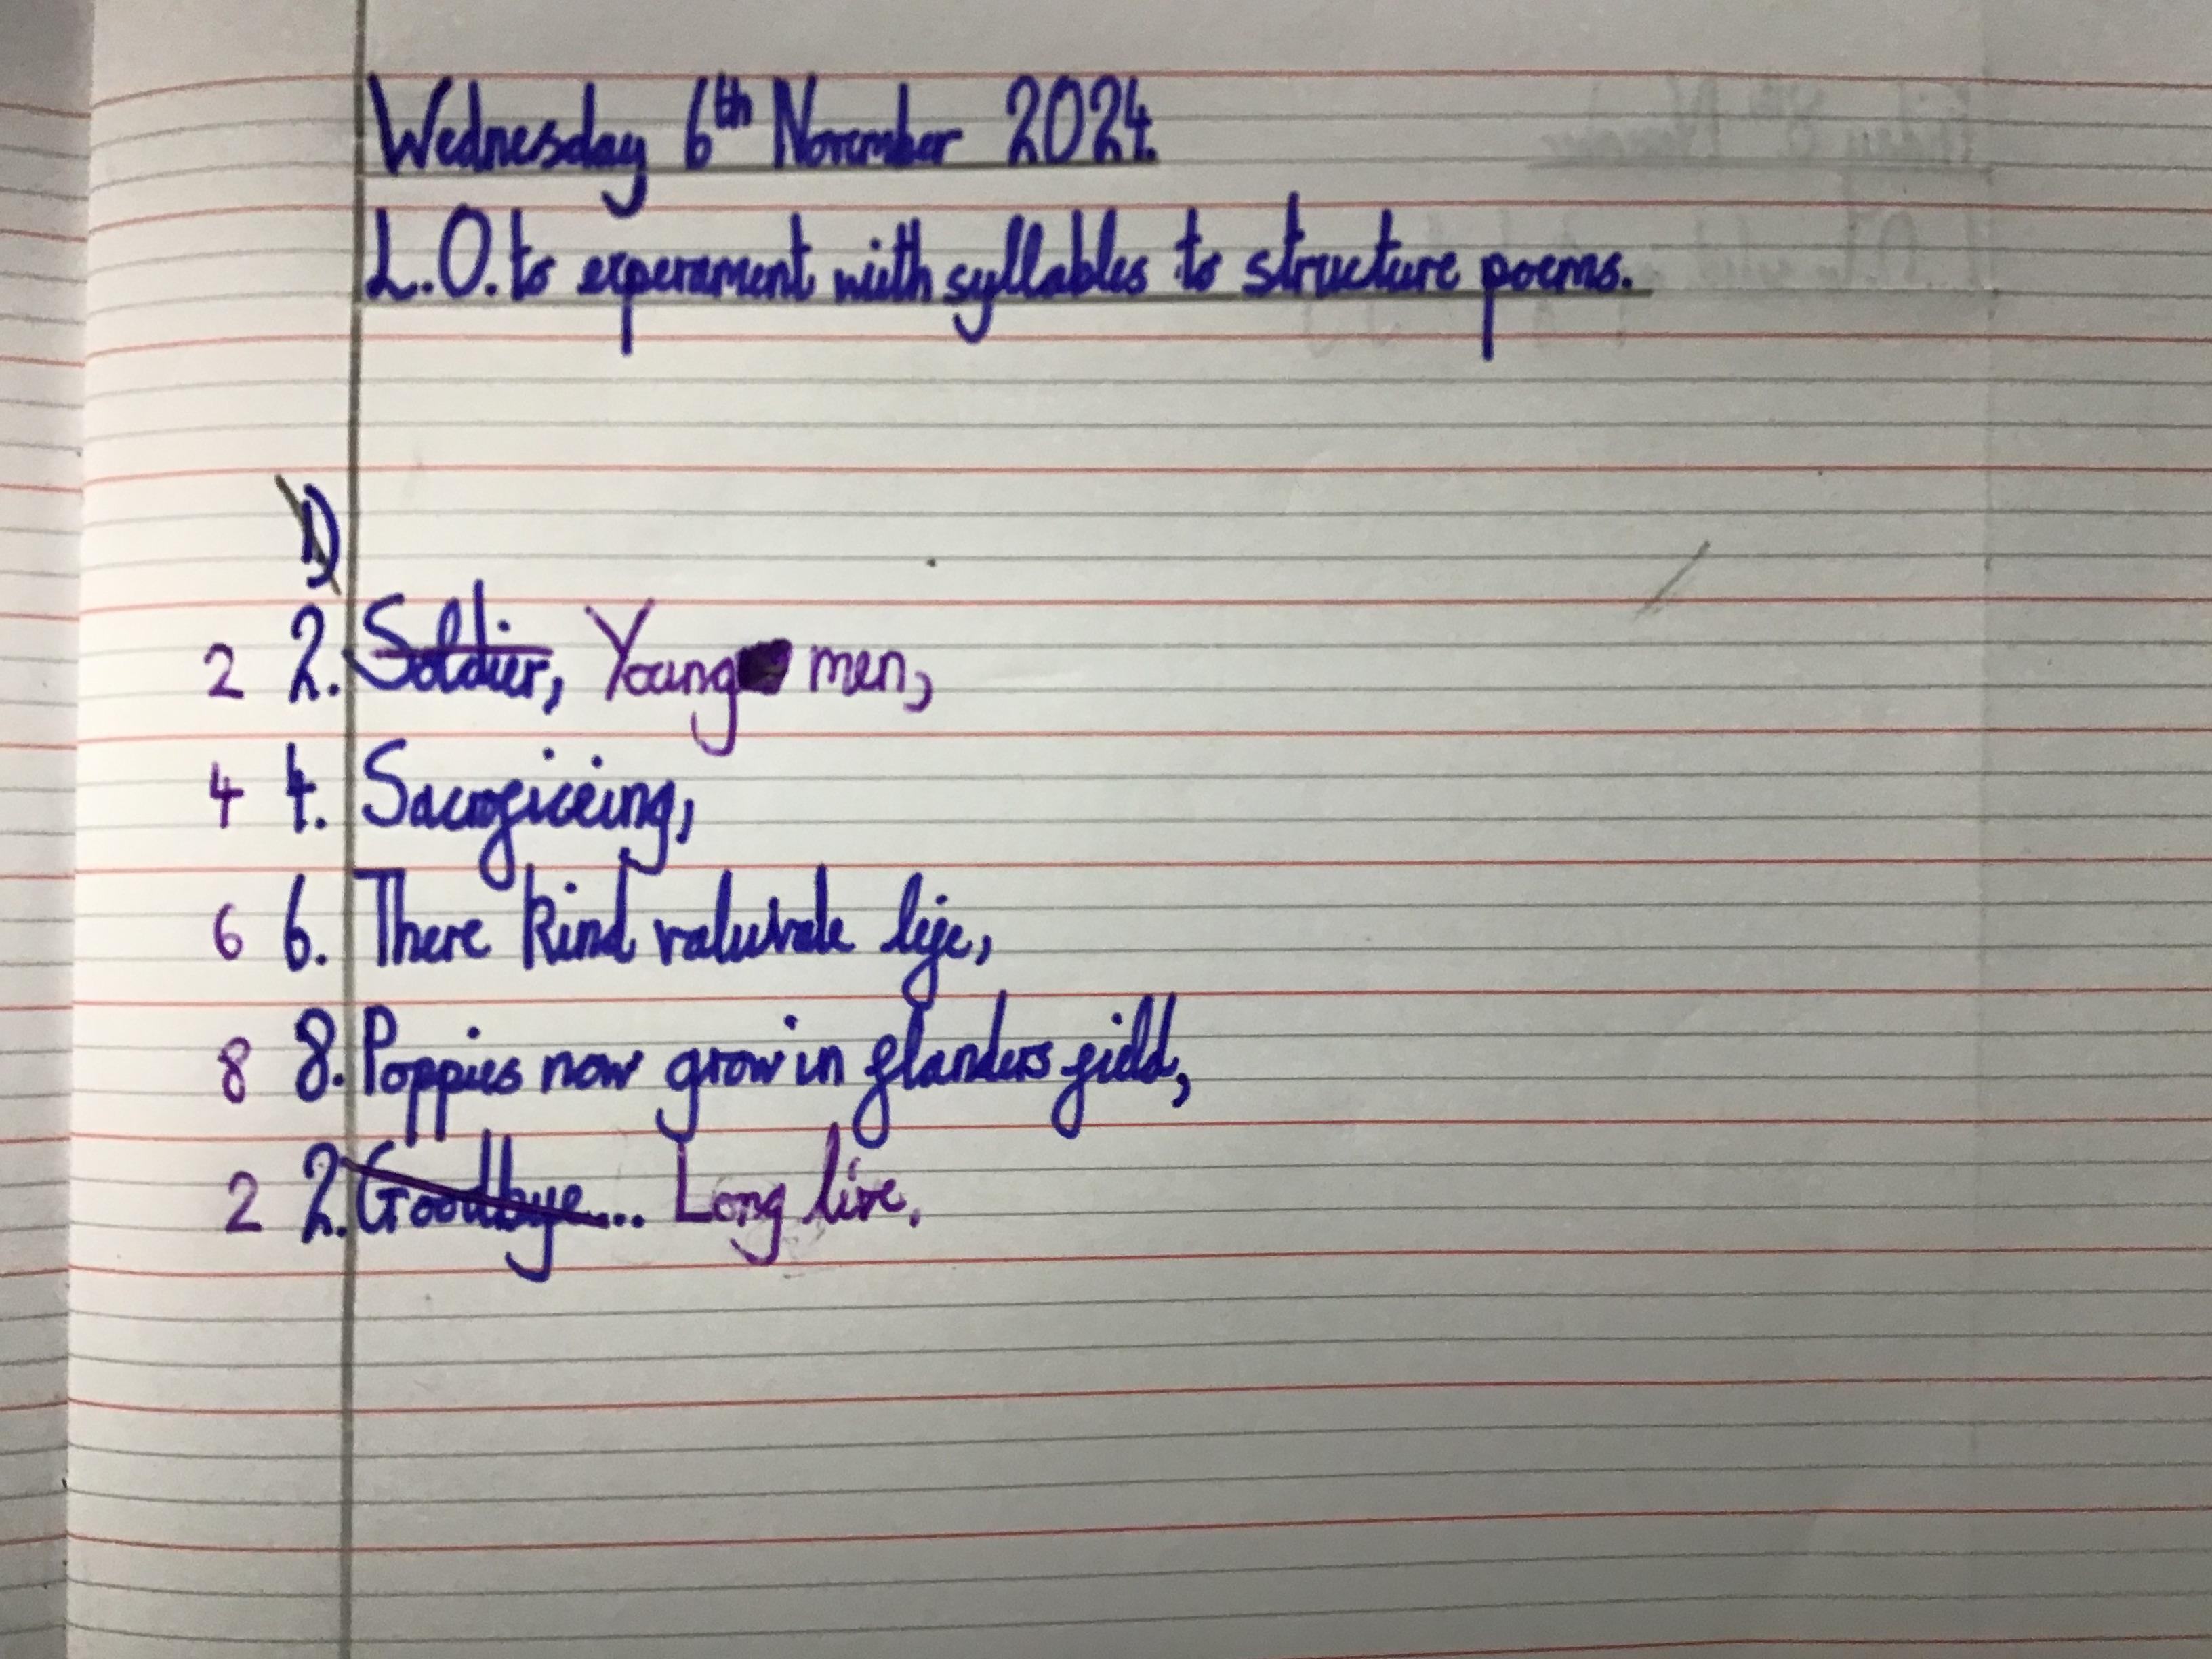 Wednesday 6th November 2024
L.O. to experament with syllables to structure poems.
1)
2 2. Soldier, Young men,
4 4. Sacrificeing,
6 6. There kind valubale life,
8 8. Poppies now grow in flanders field,
2 2. Goodbye... Long live.